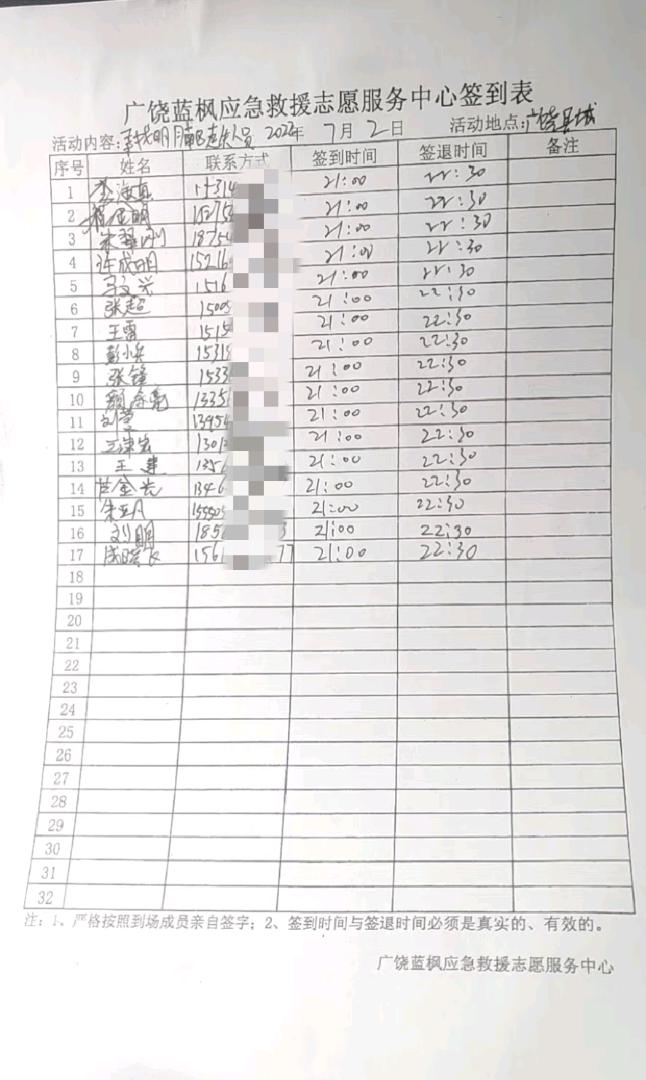 广饶蓝枫应急救援志愿服务中心签到表
活动内容: 走失人员 2022年 7月 2日 活动地点:广饶县城
序号 姓名 联系方式 签到时间 签退时间 备注
1 李海真 15314 21:00 22:30
2 15275 21:00 22:30
3 18754 21:00 22:30
4 许成明 15216 21:00 22:30
5 1516 21:00 22:30
6 张超 1500 21:00 22:30
7 王雷 1515 21:00 22:30
8 彭小兵 1531 21:00 22:30
9 张锋 1533 21:00 22:30
10 1335 21:00 22:30
11 13954 21:00 22:30
12 1301 21:00 22:30
13 王建 1356 21:00 22:30
14 1346 21:00 22:30
15 21:00 22:30
16 刘明 185 21:00 22:30
17 156 77 21:00 22:30
18
19
20
21
22
23
24
25
26
27
28
29
30
31
32
注:1、严格按照到场成员亲自签字;2、签到时间与签退时间必须是真实的、有效的。
广饶蓝枫应急救援志愿服务中心